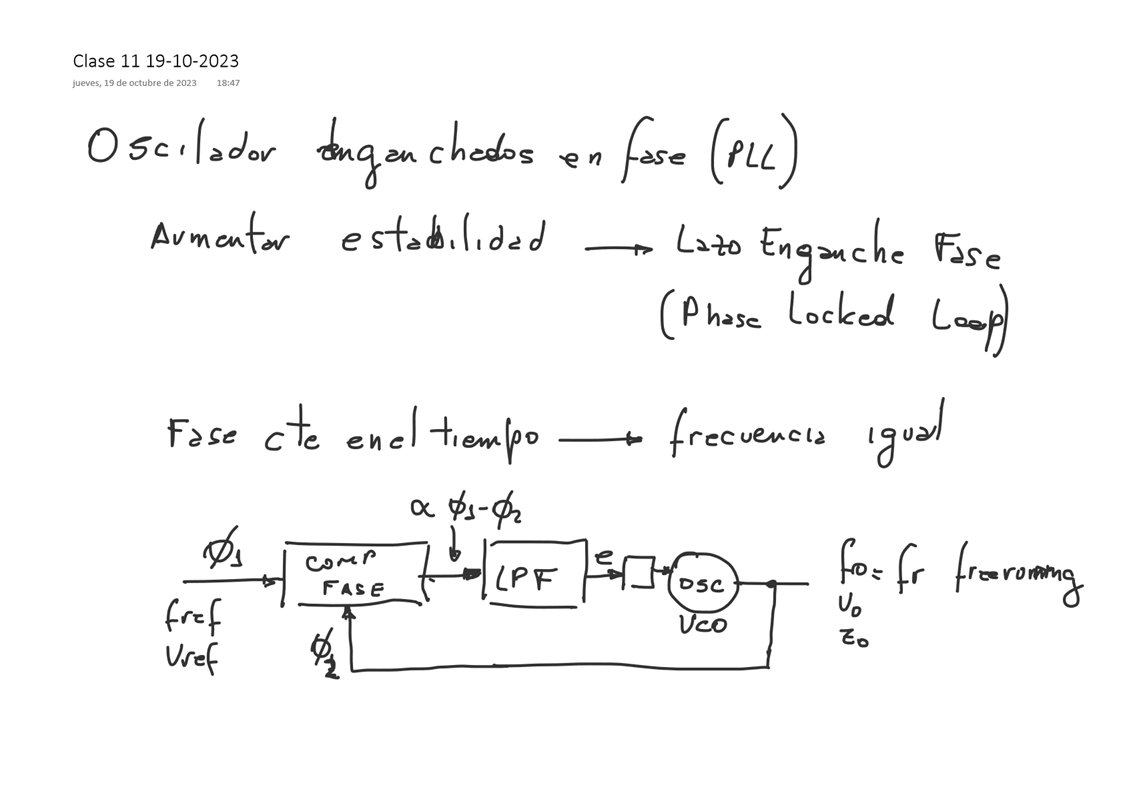 Clase 11 19-10-2023
jueves, 19 de octubre de 2023 18:47
Oscilador enganchados en fase (PLL)
Aumentar estabilidad → Lazo Enganche Fase
(Phase Locked Loop)
Fase cte en el tiempo → frecuencia igual
α ϕ1-ϕ2
ϕ1
COMP FASE
LPF
e
OSC
VCO
fo = fr freeroming
Vo
Zo
fref
Vref
ϕ2